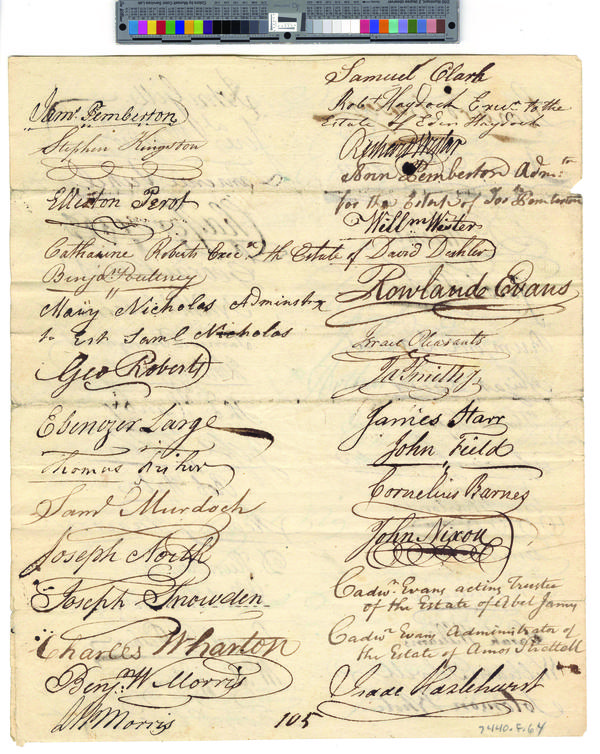 Jam.s Pemberton
Stephen Kingston
Elliston Perot
Catharine Roberts Exec.x th Estate of David Deshler
Benj.n Poultney
Mary Nicholas Adminstrx
to Est Saml Nicholas
Geo Roberts
Ebenezer Large
Thomas Fisher
Sam.l Murdoch
Joseph North
Joseph Snowden
Charles Wharton
Benj.n W Morris
Morris
Samuel Clark
Rob.t Haydock Exec.r to the
Estate of Eden Haydock
Pemberton Adm.
for the Estate of Jos. Pemberton
Will.m Wister
Rowland Evans
Israel Pleasants
Ja.s Smith Jr.
James Starr
John Field
Cornelius Barnes
John Nixon
Cadw.r Evans acting Trustee
of the Estate of Abel James
Cadw.r Evans Administrator of
the Estate of Amos Strettell
Isaac Hazlehurst
105
7440.F.64